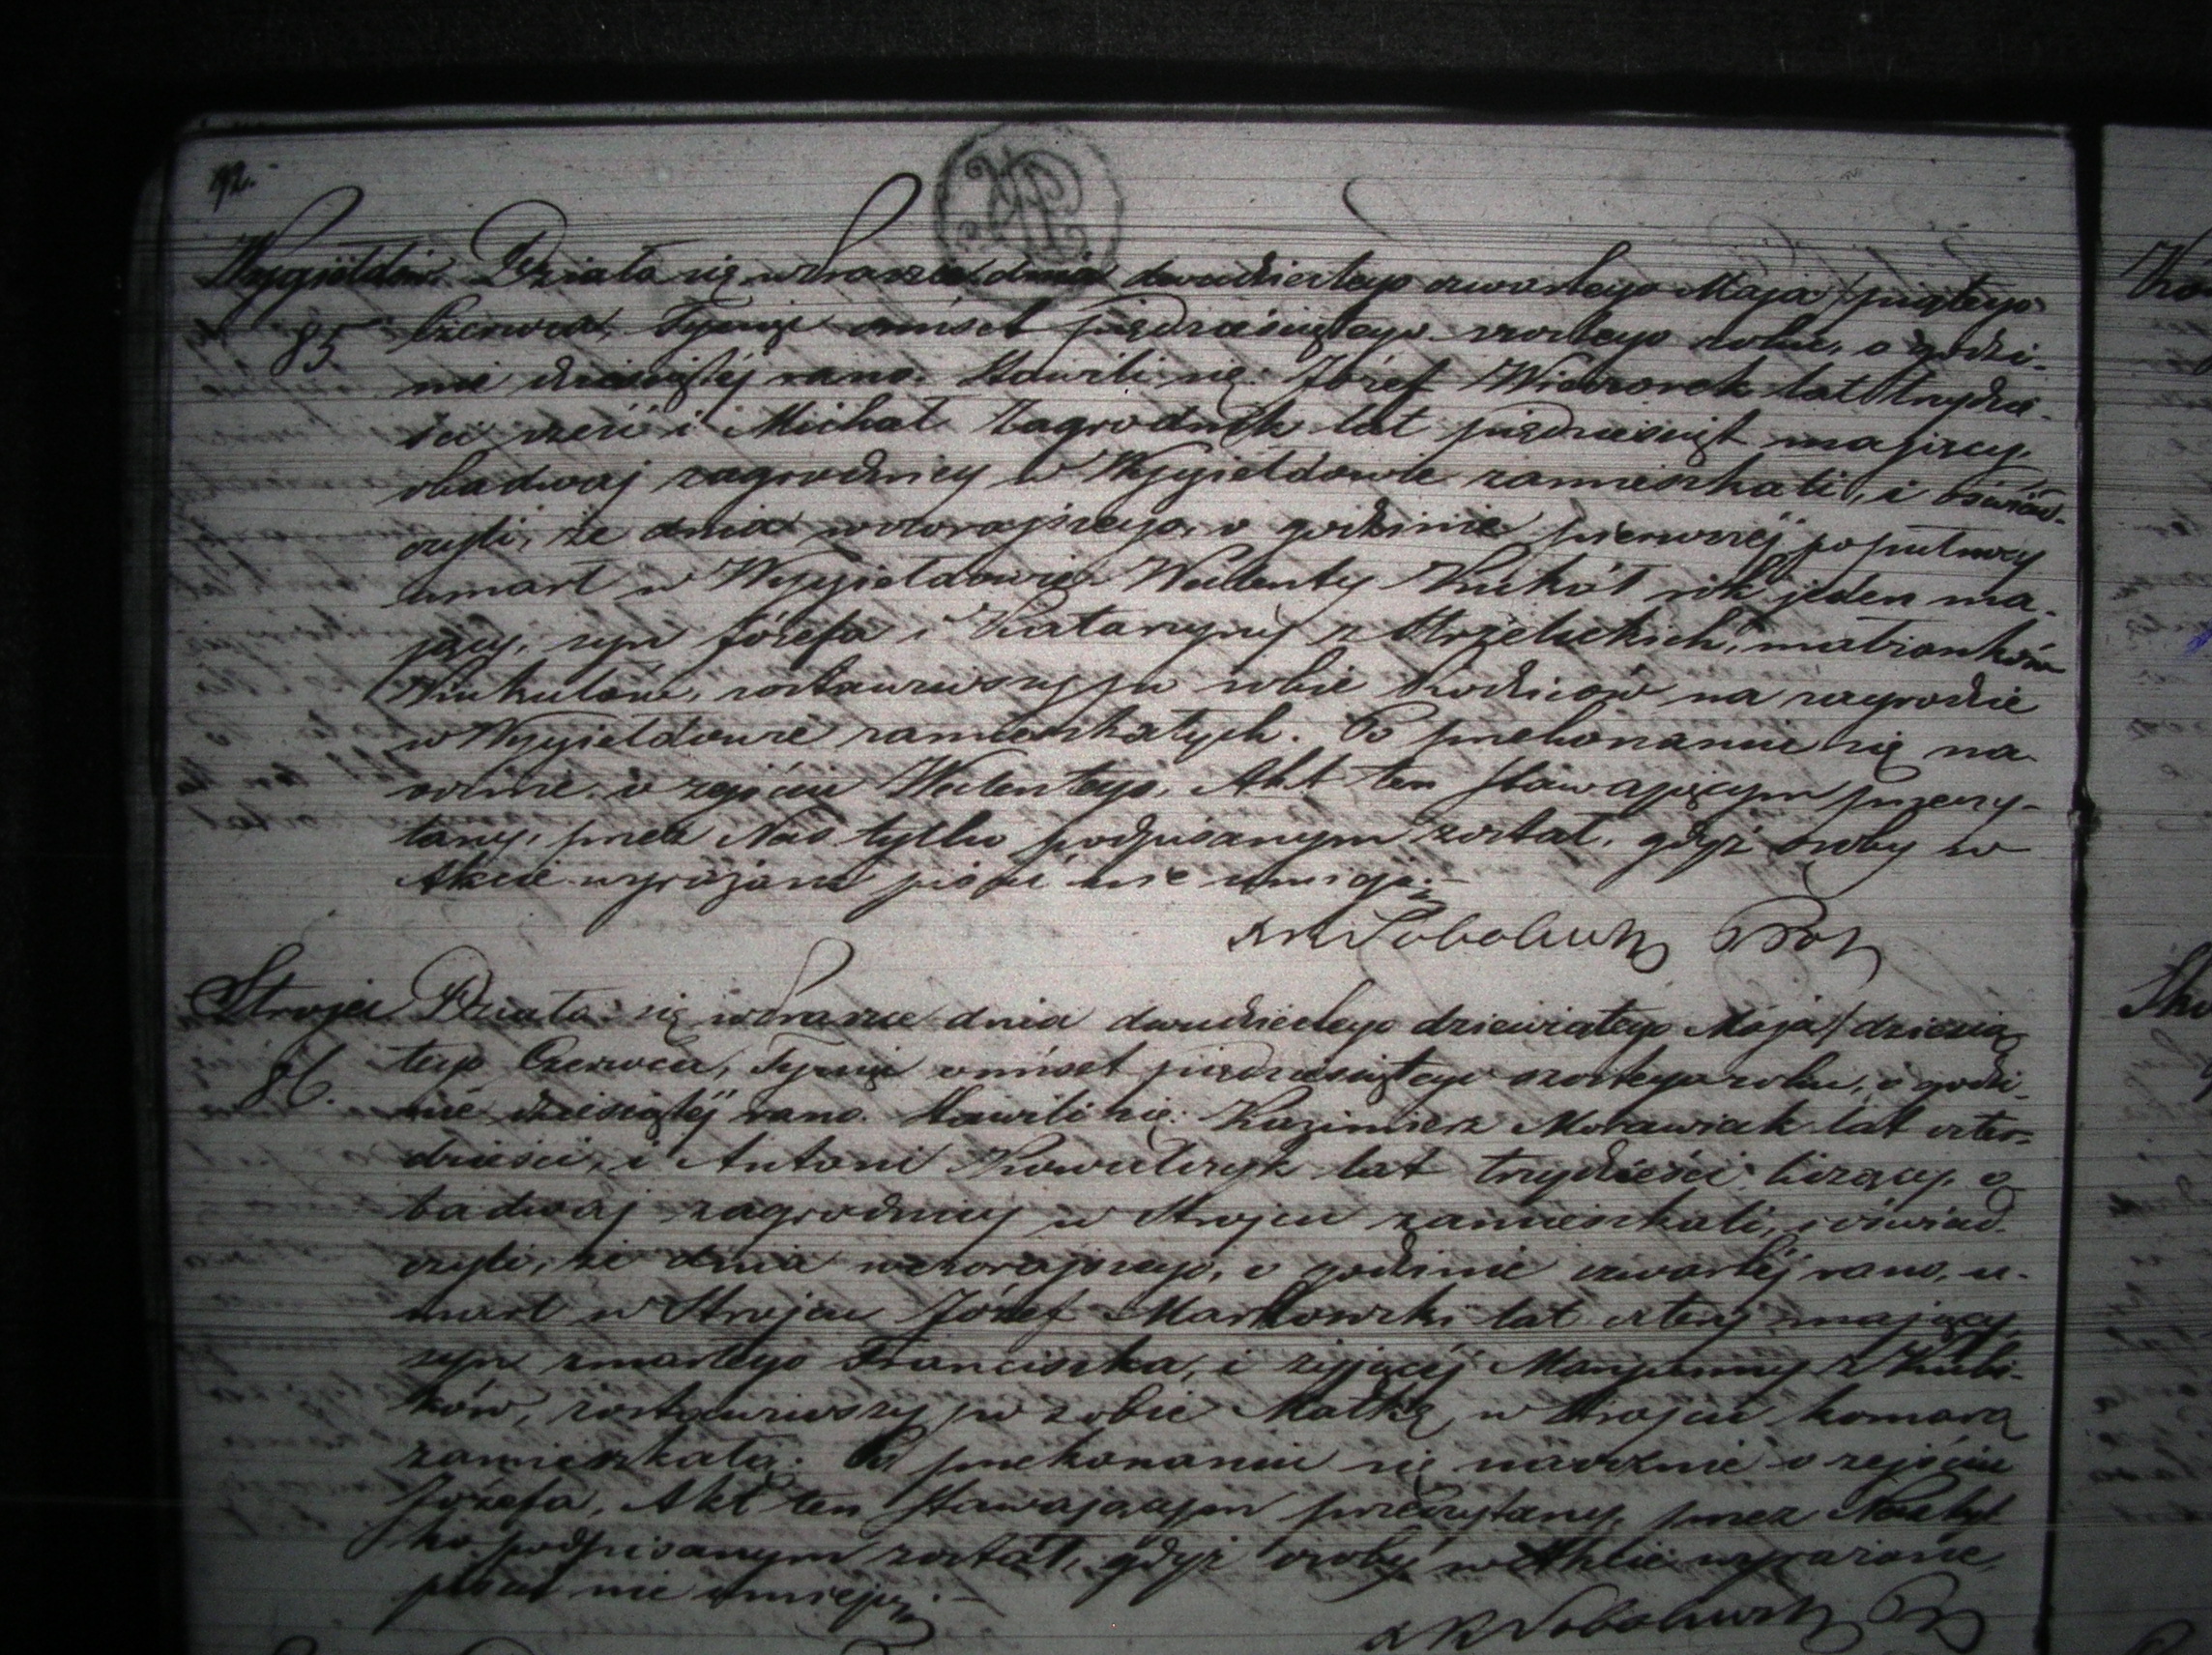 92.
Wygiełdów. Działo się w Drasze dnia dwudziestego czwartego Maja / piątego
85. Czerwca, Tysiąc ośmset pięćdziesiątego szóstego roku, o godzi-
nie dziesiątéj rano. Stawili się: Józef Wieczorek lat trzydzie-
ści sześć i Michał Zagrodnik lat pięćdziesiąt mający,
obadwaj zagrodnicy w Wygiełdowie zamieszkali, i oświad-
czyli, że dnia wczorajszego, o godzinie pierwszéj popułnocy
umarł w Wygiełdowie Walenty Kukuł rok jeden ma-
jący, syn Józefa i Katarzyny z Strzeleckich, małżonków
Kukułów, zostawiwszy po sobie Rodziców na zagrodzie
w Wygiełdowie zamieszkałych. Po przekonaniu się na-
ocznie, o zejściu Walentego, Akt ten stawającym przeczy-
tany, przez Nas tylko podpisanym został, gdyż osoby w
Akcie wyrażone pisać nie umieją.
Sobolewski
Strojec Działo się w dnia dwudziestego dziewiątego Maja / dziesią
86. tego Czerwca, Tysiąc ośmset pięćdziesiątego szóstego roku, o godzi-
nie dziesiątéj rano. Stawili się: Kazimierz Morawiak lat czter-
dzieści, i Antoni Kowalczyk lat trzydzieści liczący, o
badwaj zagrodnicy w Strojcu zamieszkali, i oświad-
czyli, że dnia wczorajszego, o godzinie czwartéj rano, u-
marł w Strojcu Józef Markowski lat cztery mający,
syn zmarłego Franciszka, i żyjącéj Maryanny z Kubi-
ków, zostawiwszy po sobie Matkę, w Strojcu komorą
zamieszkałą. Po przekonaniu się naocznie o zejściu
Józefa, Akt ten stawającym przeczytany, przez Nas tyl
ko podpisanym został, gdyż osoby w Akcie wyrażone,
pisać nie umieją.
Sobolewski